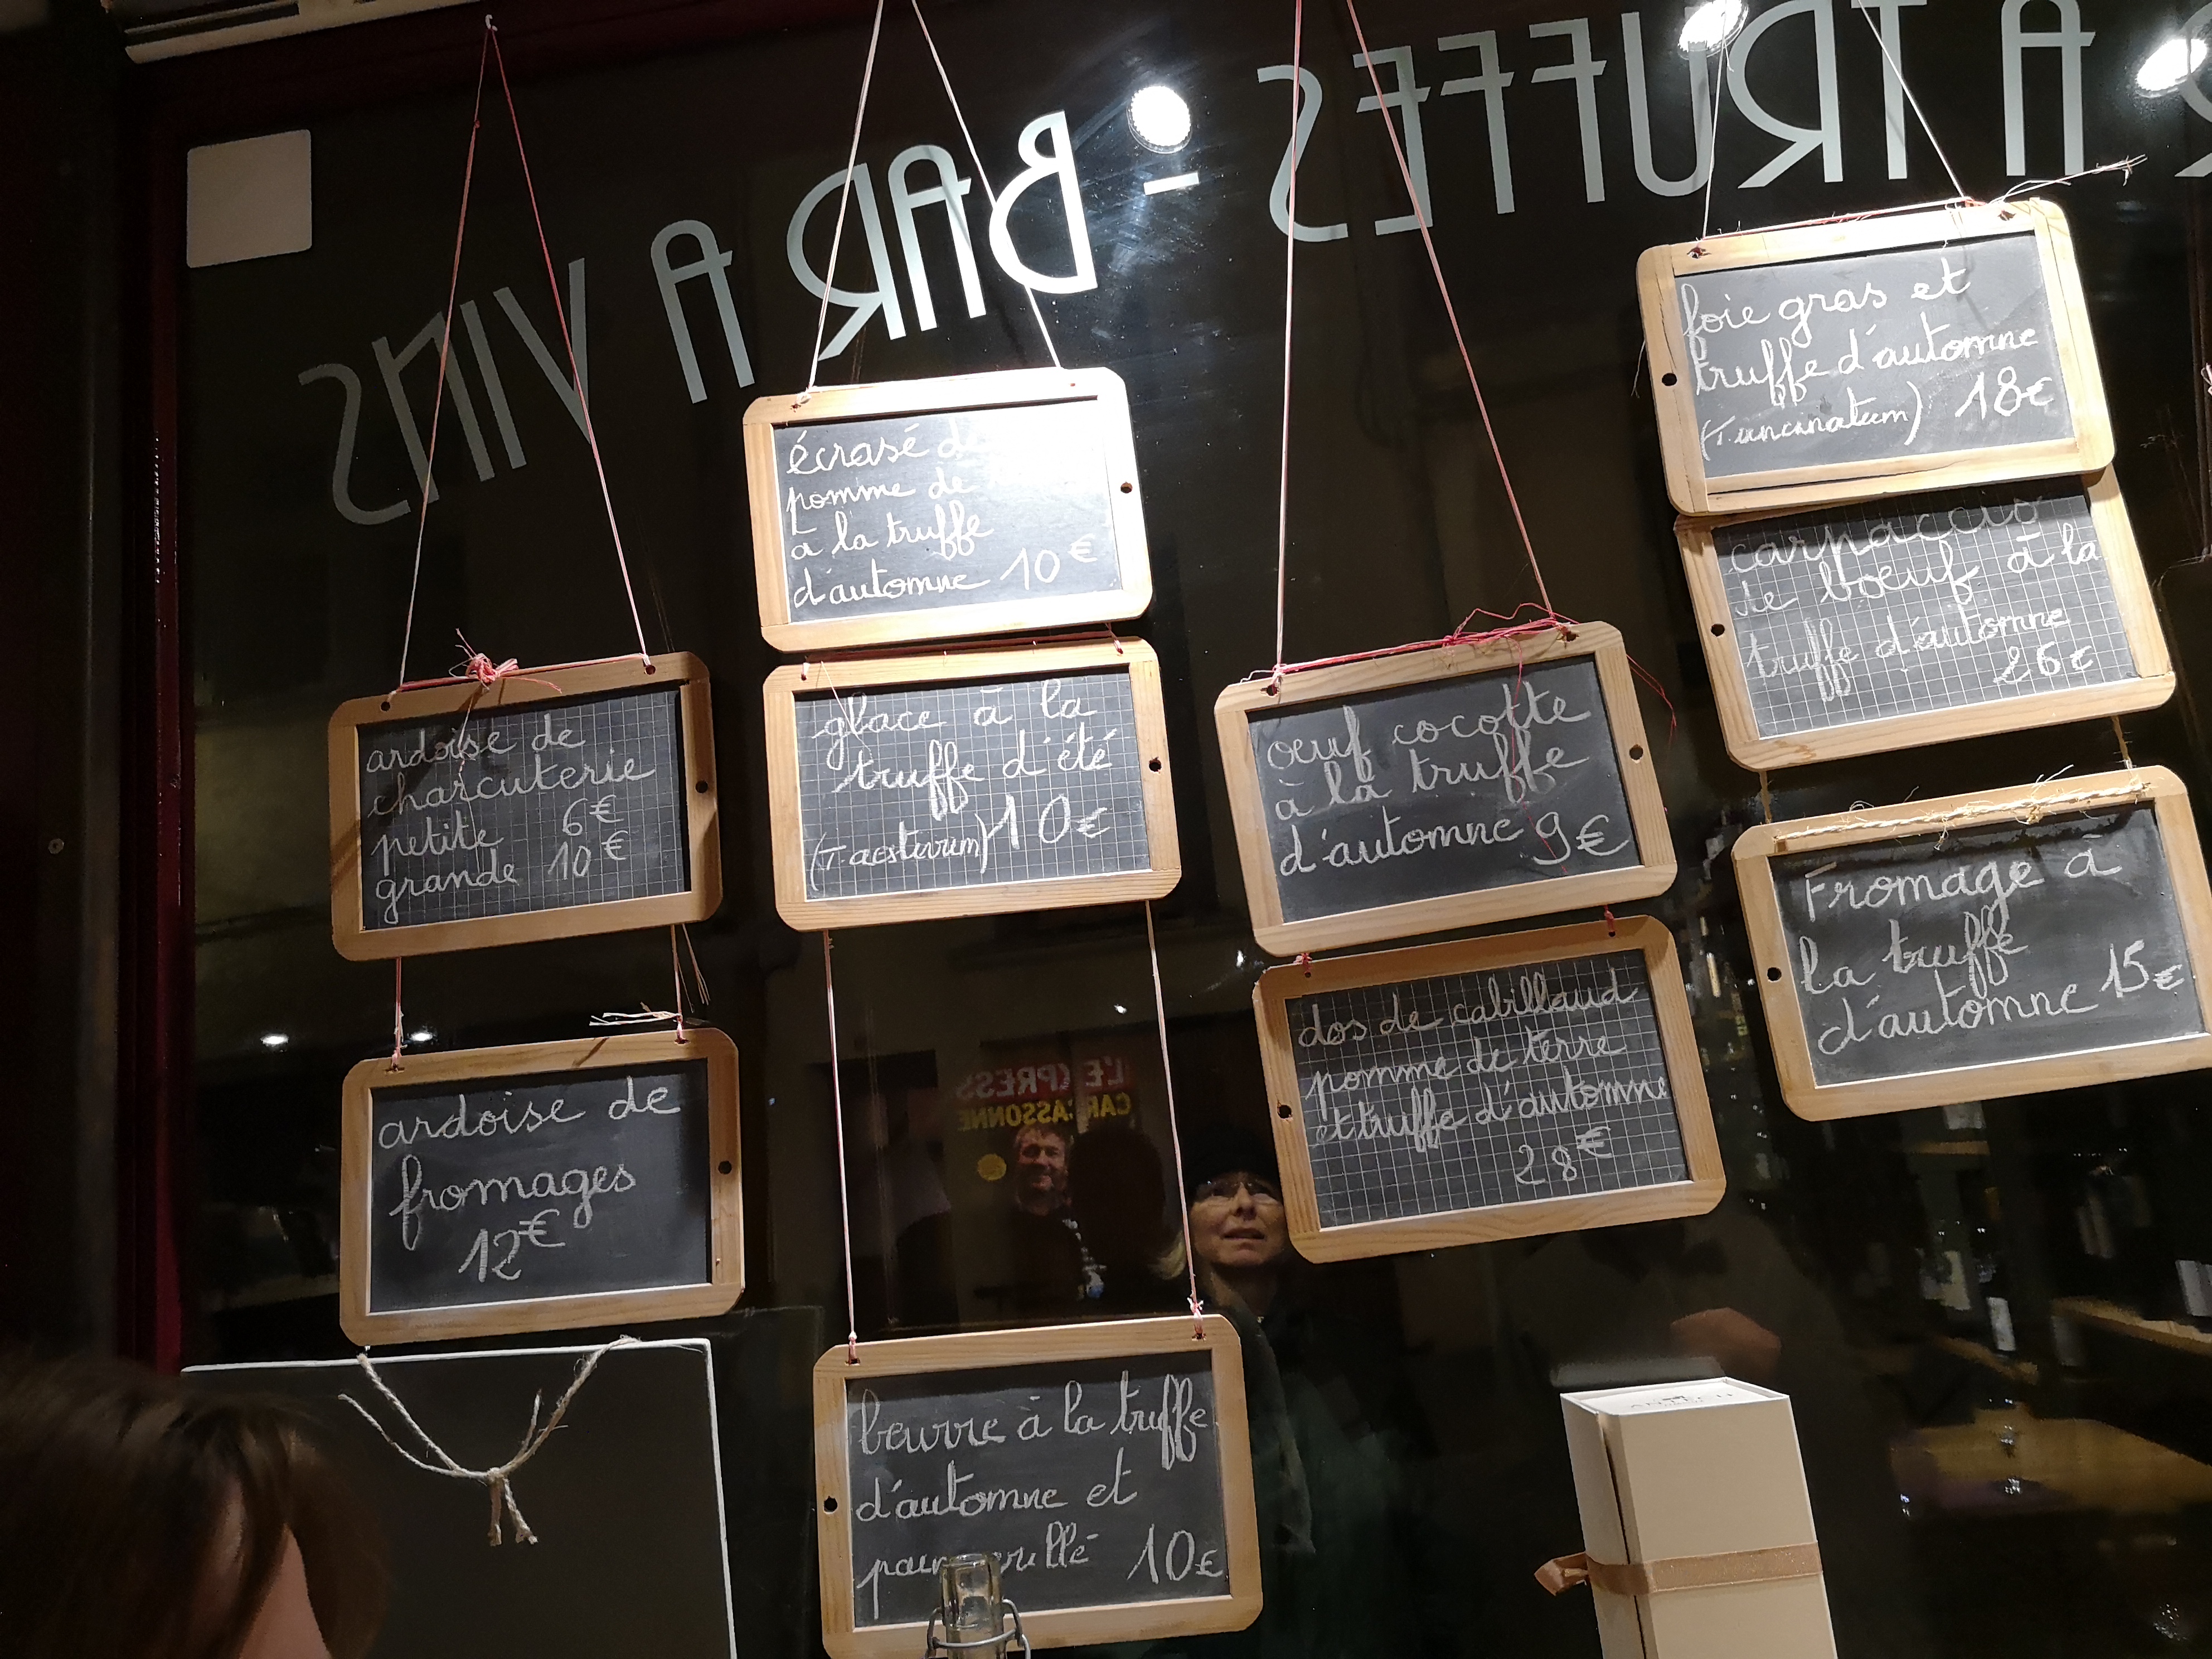 BAR A TRUFFES - BAR A VINS
ardoise de
charcuterie
petite 6€
grande 10€
ardoise de
fromages
12€
écrasé de
pomme de
à la truffe
d'automne 10€
glace à la
truffe d'été
(T. aestivum) 10€
beurre à la truffe
d'automne et
pain grillé 10€
œuf cocotte
à la truffe
d'automne 9€
dos de cabillaud
pomme de terre
et truffe d'automne
28€
foie gras et
truffe d'automne
(T. uncinatum) 18€
carpaccio
de bœuf à la
truffe d'automne
26€
Fromage à
la truffe
d'automne 15€
L'EXPRESS
CARCASSONNE